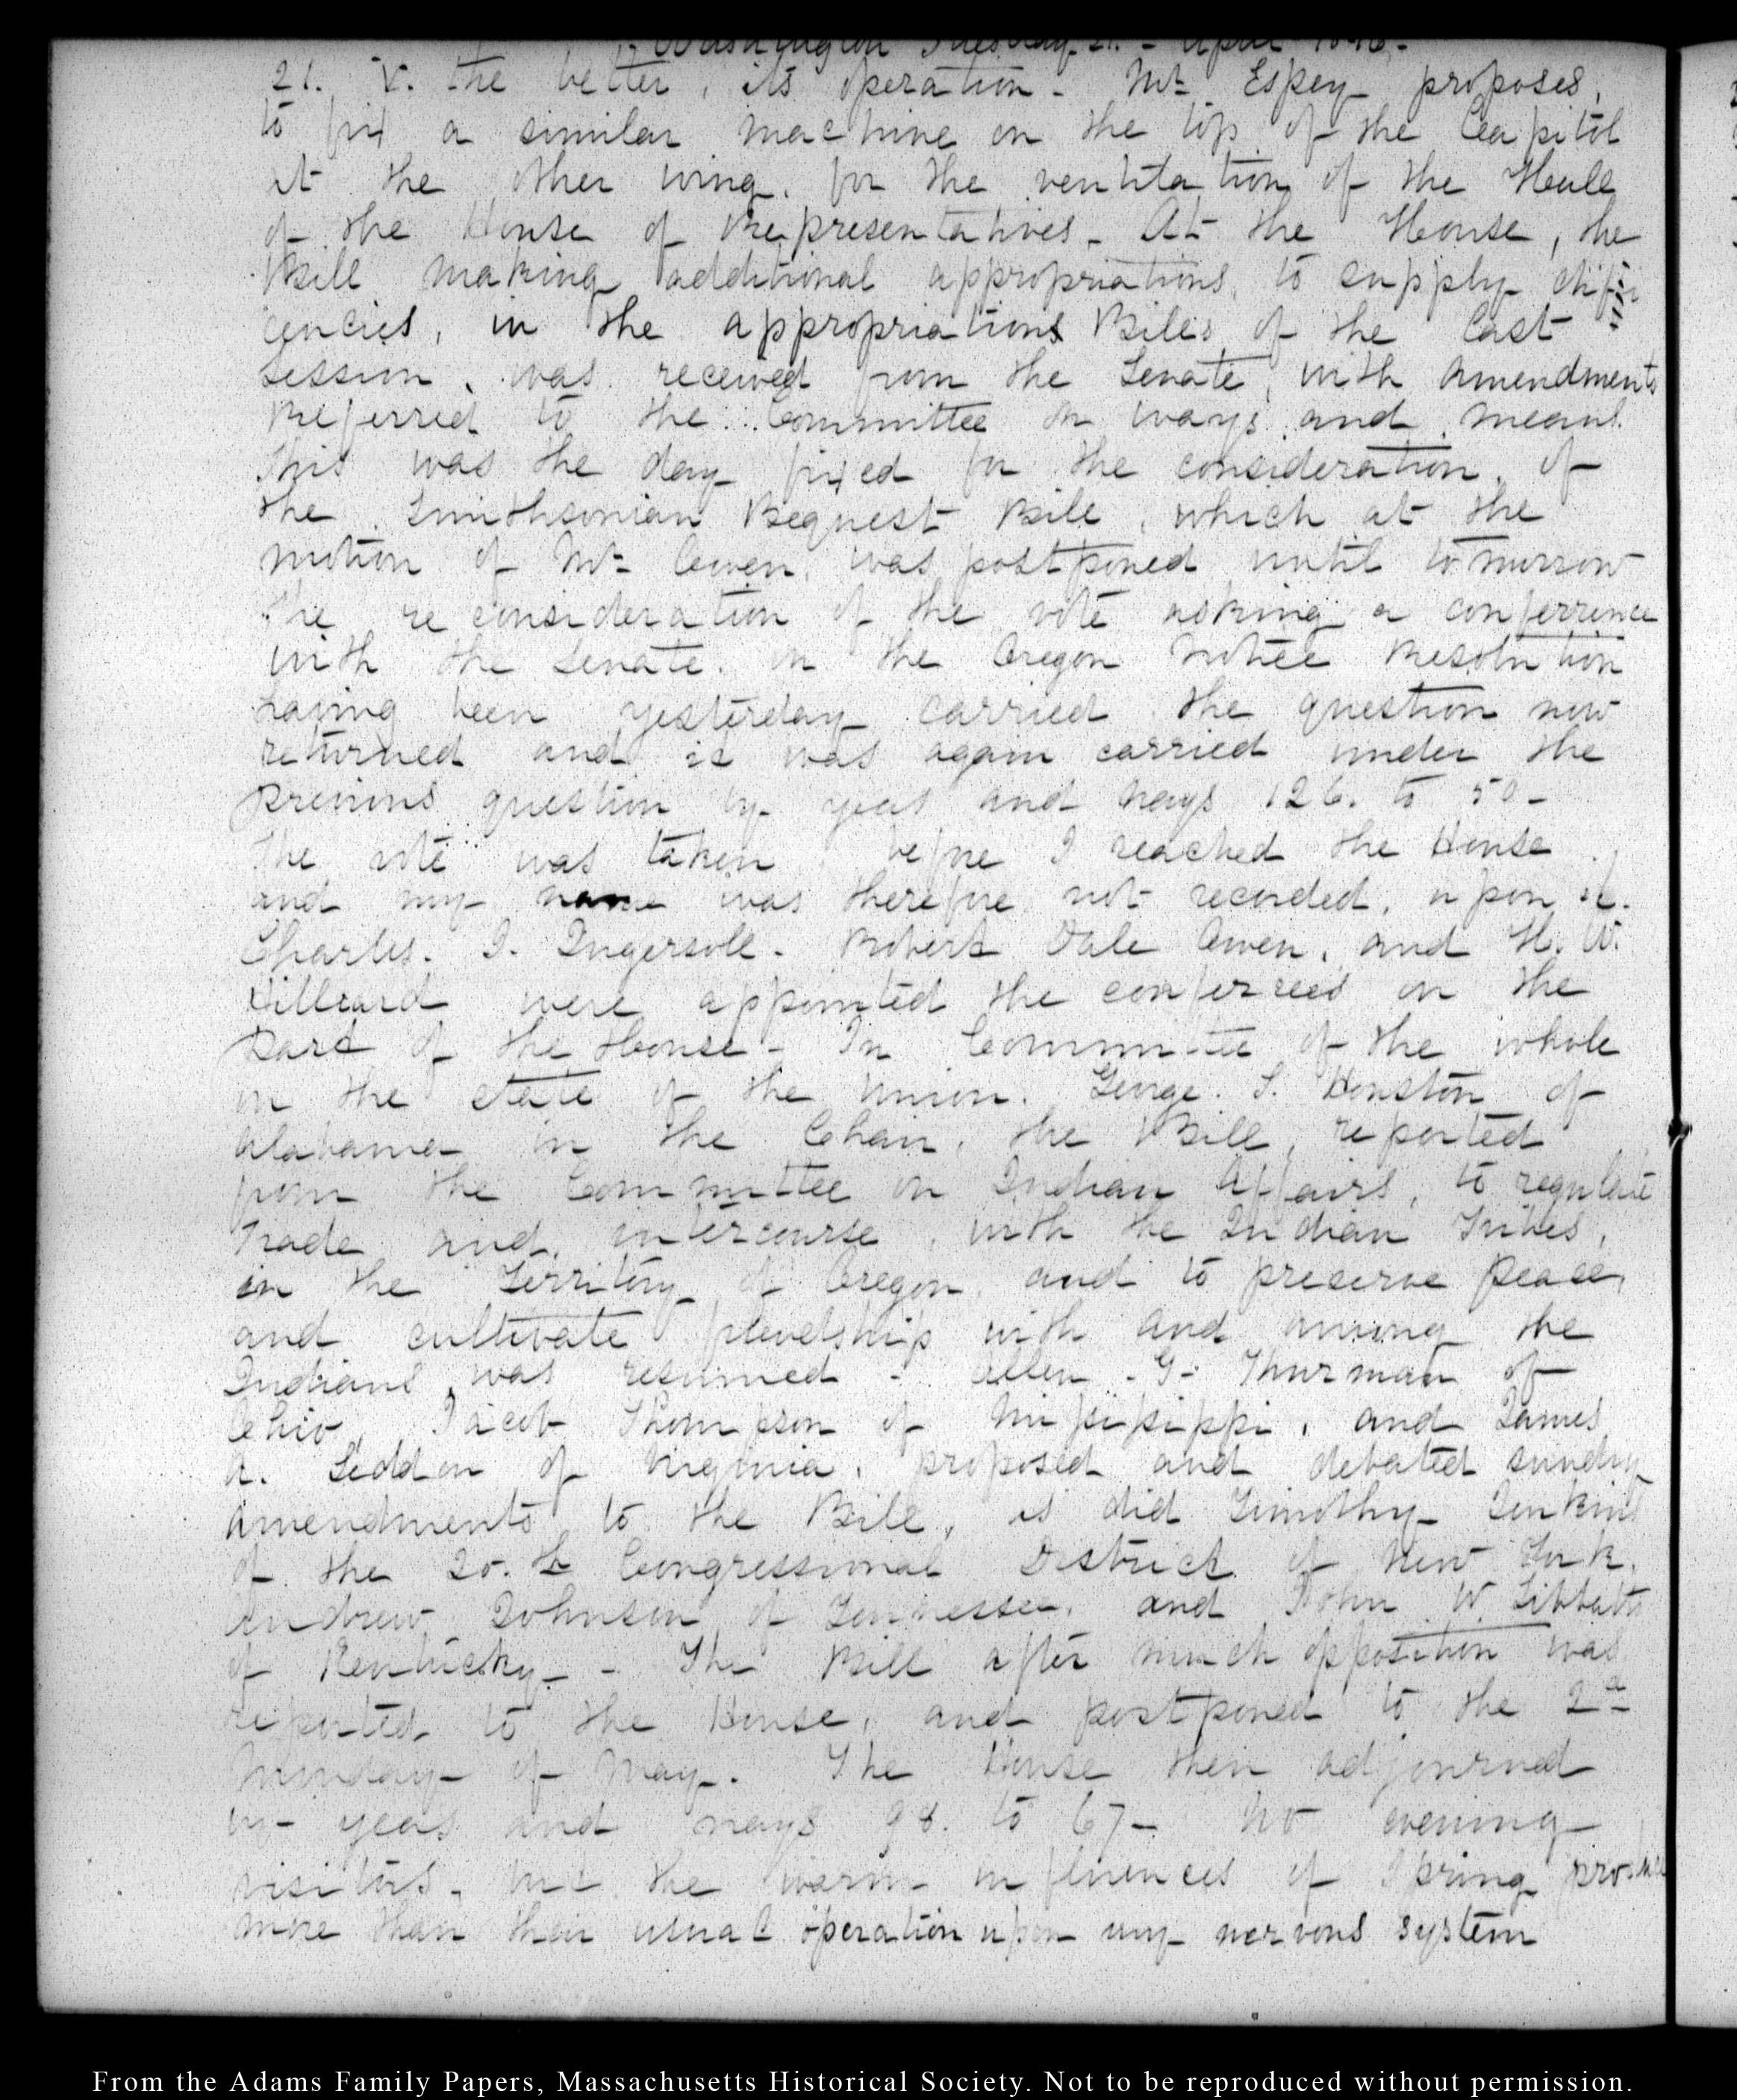 Washington Tuesday 21. - April 1846.-
21. V. the better, its operation - Mr Espey proposes,
to fix a similar machine on the top of the Capitol
at the other wing, for the ventilation of the Hall
of the House of Representatives - At the House, the
Bill making additional appropriations, to supply defi
ciencies, in the appropriations Bills of the last
session, was received from the Senate, with amendments
Referred to the Committee on ways and means.
This was the day fixed for the consideration, of
the Smithsonian Bequest Bill, which at the
motion of Mr Owen, was postponed until tomorrow
The reconsideration of the vote asking a conferrence
with the Senate, on the Oregon Notice Resolution
having been yesterday carried the question now
returned and it was again carried under the
previous question by yeas and nays 126. to 50 -
The vote was taken before I reached the House
and my name was therefore not recorded, upon it.
Charles. J. Ingersoll - Robert Dale Owen, and H. W.
Hilliard were appointed the conferrees on the
part of the House - In Committee of the whole
on the state of the Union. George. S. Houston of
Alabama in the Chair, the Bill, reported
from the Committee on Indian Affairs, to regulate
Trade and, intercourse, with the Indian Tribes,
in the Territory of Oregon, and to preserve peace,
and cultivate friendship with and among the
Indians, was resumed - Allen - G - Thurman of
Ohio, Jacob Thompson of Mississippi, and James
A. Seddon of Virginia, proposed and debated sundry
amendments to the Bill, as did Timothy Jenkins
of the 20.th Congressional District of New York.
Andrew Johnson of Tennessee, and John W. Tibbatts
of Kentucky - - The Bill after much opposition was
reported to the House, and postponed to the 2d
Monday of May. The House then adjourned
by yeas and nays 98. to 67 - No evening
visitors - but the warm influences of Spring
more than their usual operation upon my nervous system
From the Adams Family Papers, Massachusetts Historical Society. Not to be reproduced without permission.